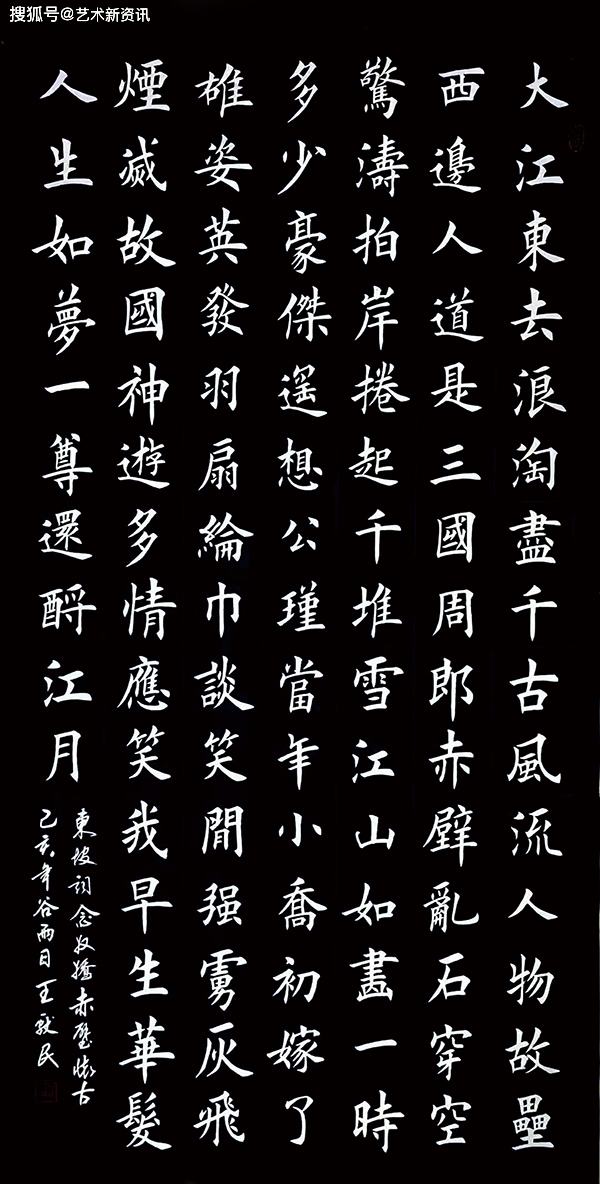 搜狐号@艺术新资讯
大江東去浪淘盡千古風流人物故壘
西邊人道是三國周郎赤壁亂石穿空
驚濤拍岸捲起千堆雪江山如畫一時
多少豪傑遙想公瑾當年小喬初嫁了
雄姿英發羽扇綸巾談笑閒强虜灰飛
煙滅故國神遊多情應笑我早生華髮
人生如夢一尊還酹江月
東坡詞念奴嬌赤壁懷古
己亥年谷雨日王民